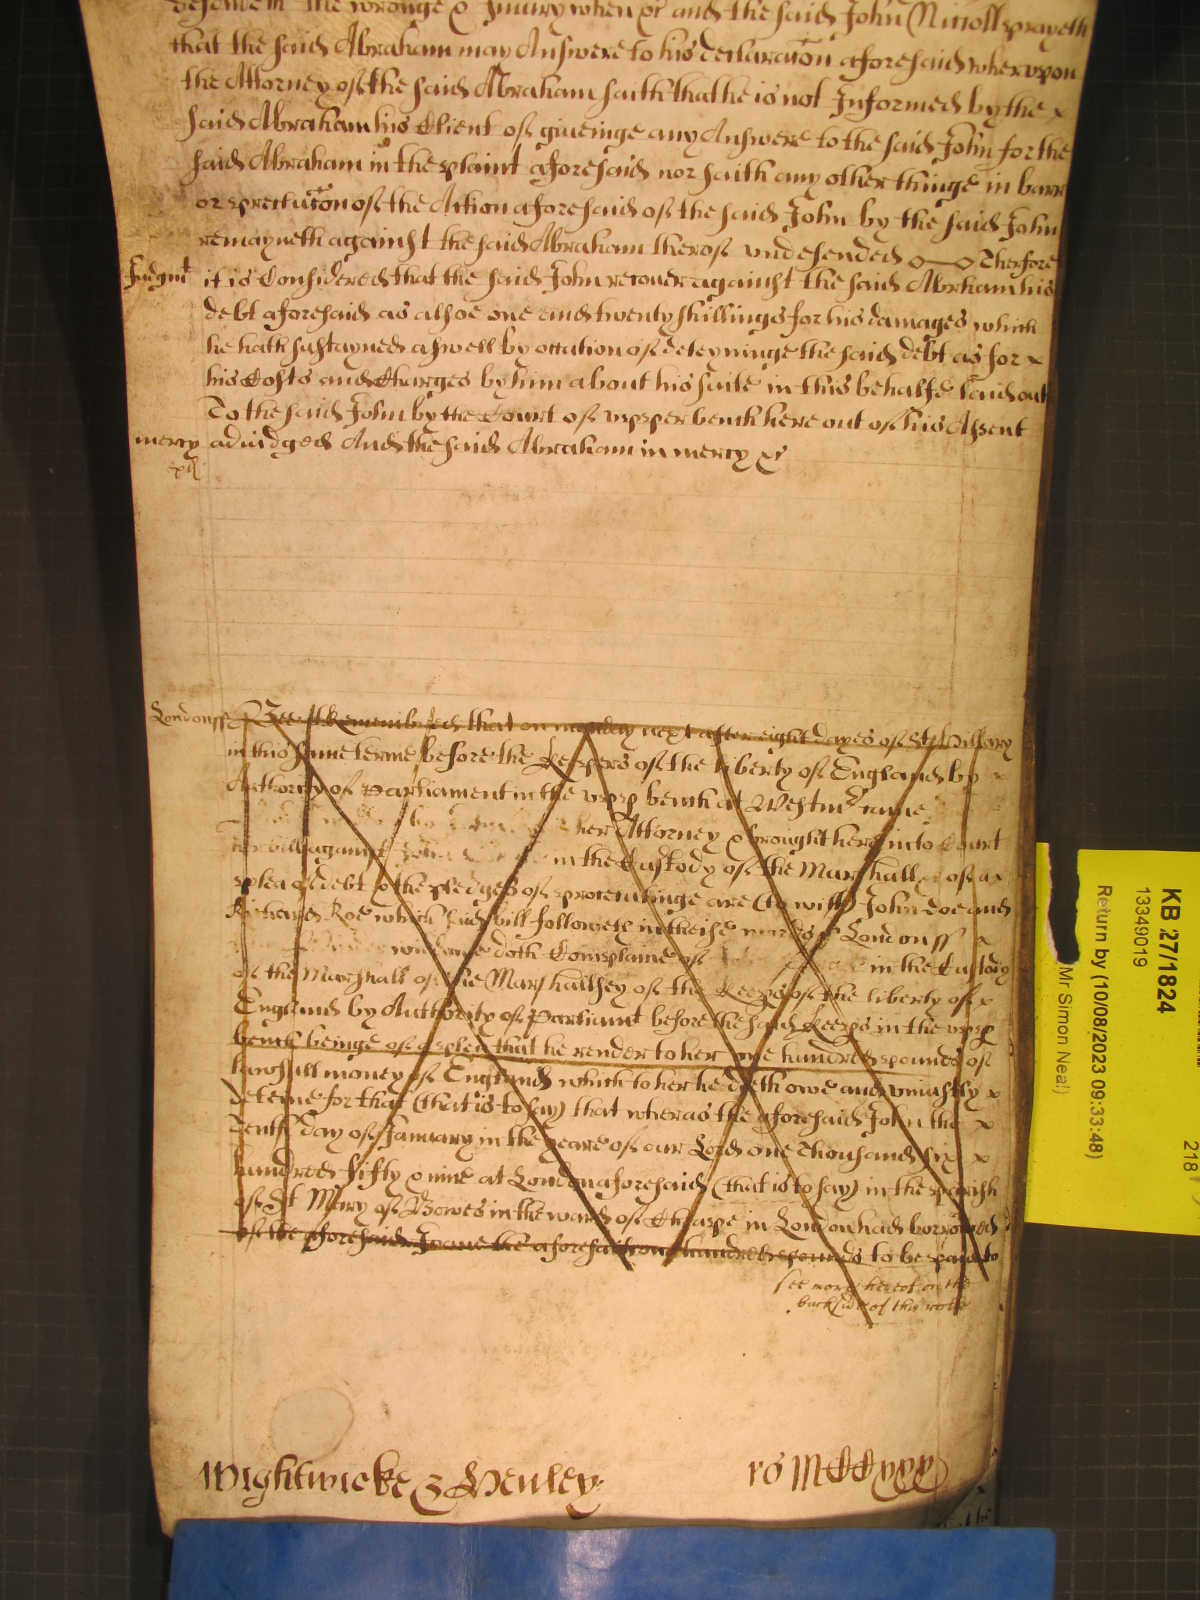 the wronge & Iniury when &c and the said John Nicoll prayeth
that the said Abraham may Answere to his declaracon aforesaid wherupon
the Attorney of the said Abraham saith that he is not Informed by the x
said Abraham his Client of giueinge any Answere to the said John for the
said Abraham in the plaint aforesaid nor saith any other thinge in barr
or preclucon of the Action aforesaid of the said John by the said John
remayneth against the said Abraham therof vndefended Therfore
Iudgmt it is Considered that the said John recouer against the said Abraham his
debt aforesaid as alsoe one and twenty shillings for his damages which
he hath sustayned aswell by occation of deteyninge the said debt as for x
his Costs and Charges by him about his suite in this behalfe laid out
To the said John by the Court of vpper bench here out of his Assent
mercy adiudged And the said Abraham in mercy &c
London ss Bee it Remembred that on munday next after eight dayes of St Hillary
in this same terme before the Keepers of the liberty of England by x
Authority of Parliament in the vpp bench at Westmr came
her Attorney & brought here into Court
her bill against John in the Custody of the Marshall &c of a x
plea of debt & the pledges of prosecutinge are (to witt) John Doe and
Richard Roe which said bill followeth in theise words ss London ss x
widdowe doth Complaine of in the Custody
of the Marshall of the Marshallsey of the Keeps of the liberty of x
England by Authority of Parliamt before the said Keeps in the vpp
bench beinge of a plea that he render to her one hundred pounds of
lawfull money of England which to her he doth owe and vniustly x
deteine for that (that is to say) that wheras the aforesaid John the x
tenth day of January in the yeare of our Lord one thousand six x
hundred fifty & nine at London aforesaid (that is to say) in the parish
of St Mary of Bowes in the ward of Cheape in London had borrowed
of the aforesaid Joane the aforesaid one hundred pounds to be paid to
see more hereof on the
backside of this rolle
Wightwicke & Henley
ro MCCxxx
KB 27/1824
13349019
Return by (10/08/2023 09:33:48)
Mr Simon Neal
218